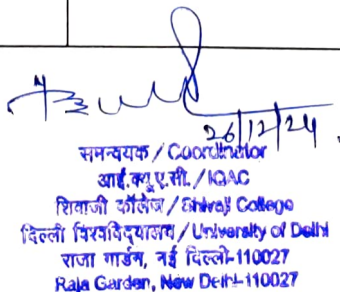 26/12/24
समन्वयक / Coordinator
आई.क्यू.ए.सी. / IQAC
शिवाजी कॉलेज / Shivaji College
दिल्ली विश्वविद्यालय / University of Delhi
राजा गार्डन, नई दिल्ली-110027
Raja Garden, New Delhi-110027